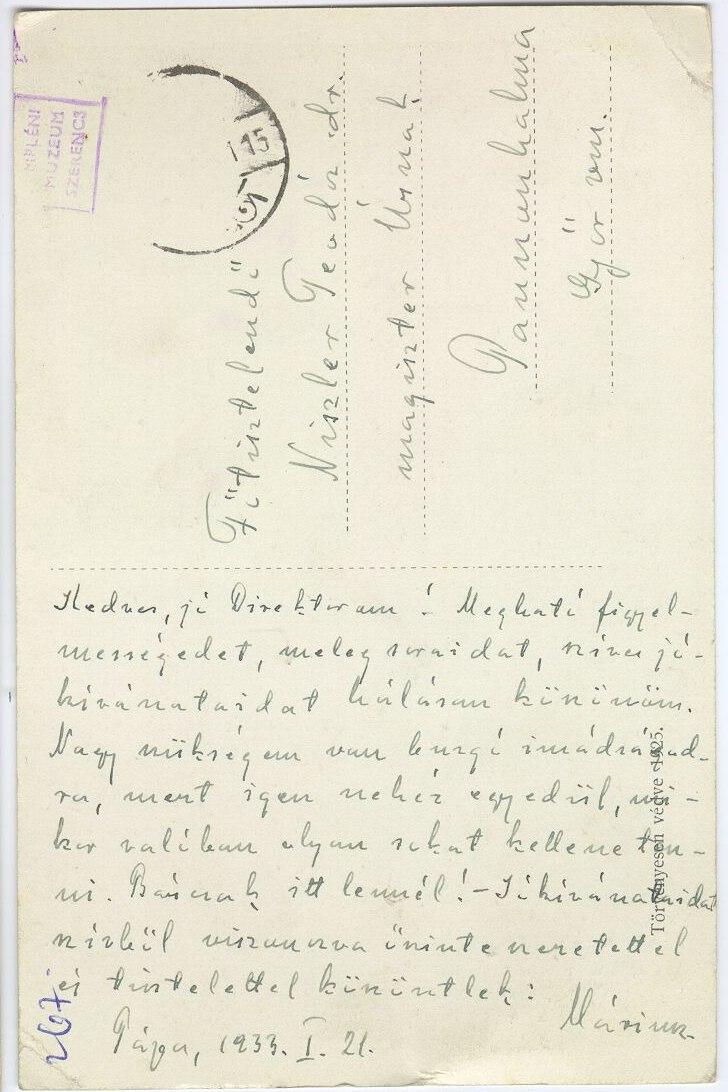 ZEMPLÉNI
MÚZEUM
SZERENCS
15
Főtisztelendő
Niszler Teodóz dr.
magiszter Úrnak
Pannonhalma
Győr vm.
Kedves, jó Direktorom! Megható figyel-
mességedet, meleg soraidat, szíves jó-
kívánataidat hálásan köszönöm.
Nagy szükségem van buzgó imádságod-
ra, mert igen nehéz egyedül, mi-
kor valóban olyan sokat kellene ten-
ni. Bárcsak itt lennél! - Jókívánataidat
szívből viszonozva őszinte szeretettel
és tisztelettel köszöntlek:
Máriusz
Pápa, 1933. I. 21.
Törvényesen védve 1925.
267.